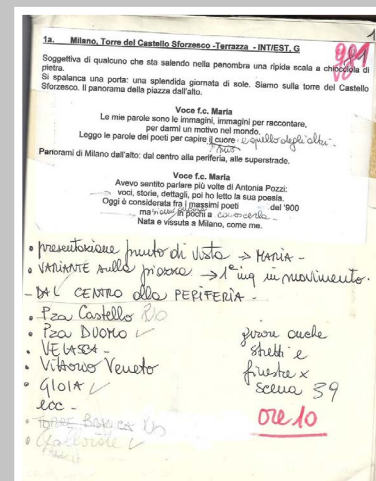 981
1a. Milano, Torre del Castello Sforzesco -Terrazza - INT/EST. G
Soggettiva di qualcuno che sta salendo nella penombra una ripida scala a chiocciola di
pietra.
Si spalanca una porta: una splendida giornata di sole. Siamo sulla torre del Castello
Sforzesco. Il panorama della piazza dall'alto.
Voce f.c. Maria
Le mie parole sono le immagini, immagini per raccontare,
per darmi un motivo nel mondo.
Leggo le parole dei poeti per capire il cuore e quello degli altri.
mio
Panorami di Milano dall'alto: dal centro alla periferia, alle superstrade.
Voce f.c. Maria
Avevo sentito parlare più volte di Antonia Pozzi:
voci, storie, dettagli, poi ho letto la sua poesia.
Oggi è considerata fra i massimi poeti del '900
ma in pochi a conoscerla.
Nata e vissuta a Milano, come me.
• presentazione punto di vista → MARIA -
• VARIANTE sulla piazza → 1ª inq in movimento.
- DAL CENTRO alla PERIFERIA -
• P.za Castello
• P.za DUOMO ✓
• VELASCA -
• Vittorio Veneto
• GIOIA ✓
• ecc -
girare anche
stretti e
finestre x
scena 39
ore 10